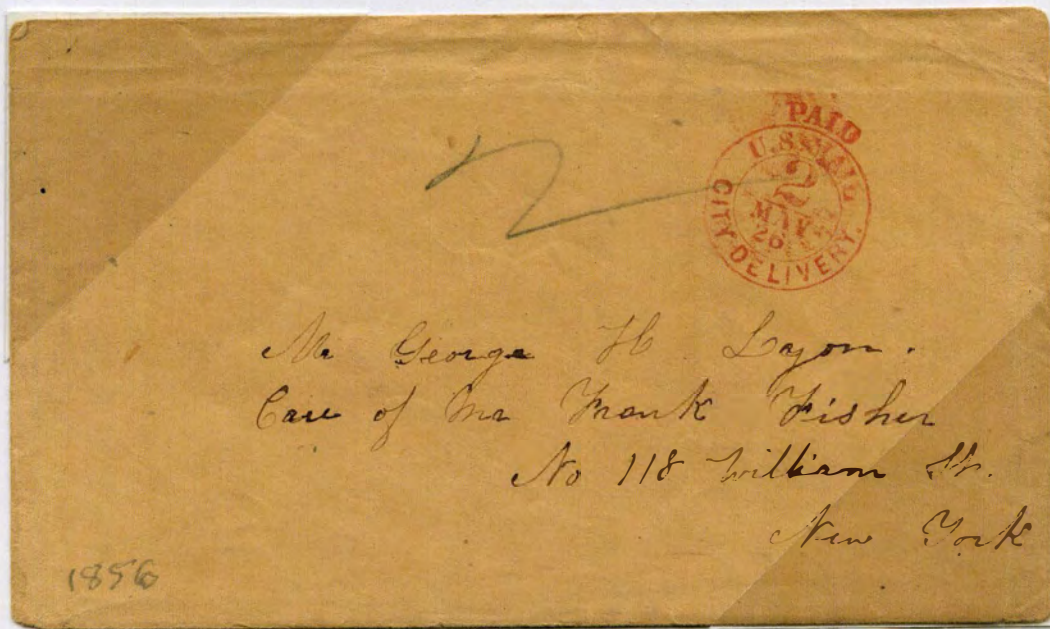 PAID
U.S. MAIL
2
MAY
26
CITY DELIVERY.
2
Mr George H Lyon.
Care of Mr Frank Fisher
No 118 William St.
New York
1856